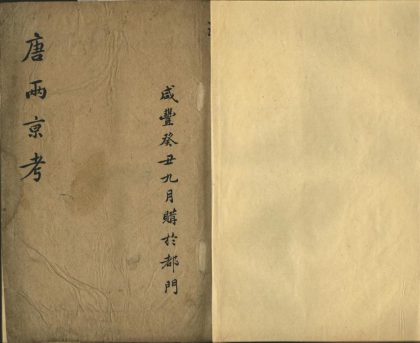 咸豐癸丑九月購於都門
唐兩亰考